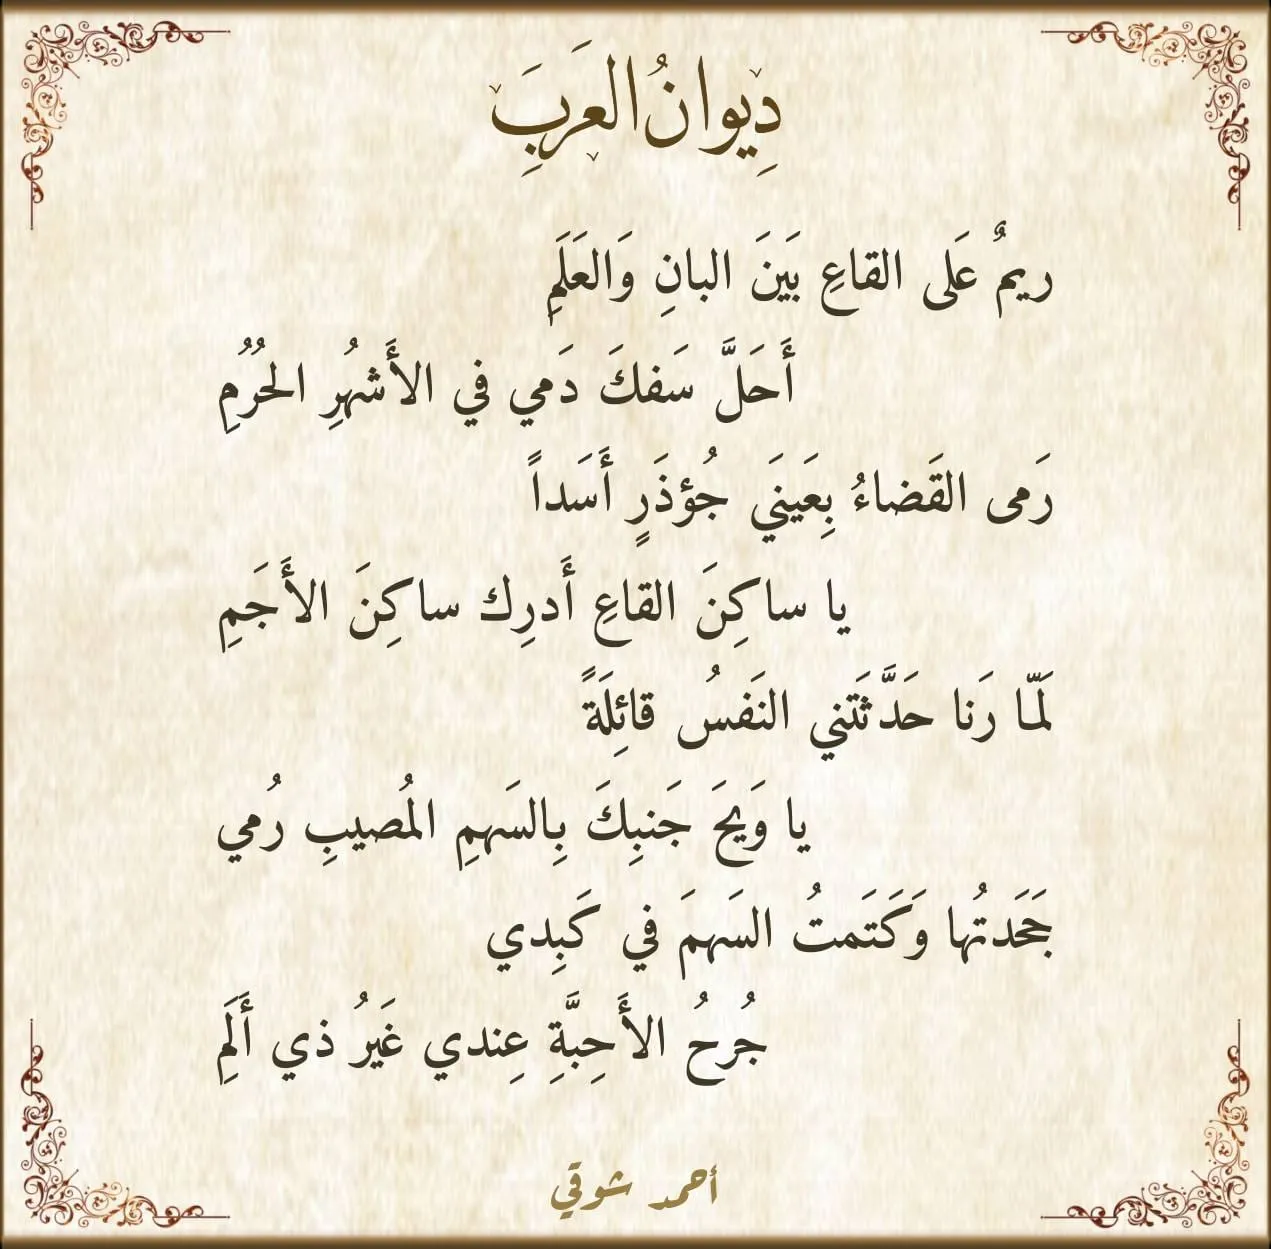 دِيوانُ العَرَبِ
ريمٌ عَلى القاعِ بَينَ البانِ وَالعَلَمِ
أَحَلَّ سَفكَ دَمي في الأَشهُرِ الحُرُمِ
رَمى القَضاءُ بِعَينَي جُؤذَرٍ أَسَداً
يا ساكِنَ القاعِ أَدرِك ساكِنَ الأَجَمِ
لَمّا رَنا حَدَّثَتني النَفسُ قائِلَةً
يا وَيحَ جَنبِكَ بِالسَهمِ المُصيبِ رُمي
جَحَدتُها وَكَتَمتُ السَهمَ في كَبِدي
جُرحُ الأَحِبَّةِ عِندي غَيرُ ذي أَلَمِ
أحمد شوقي